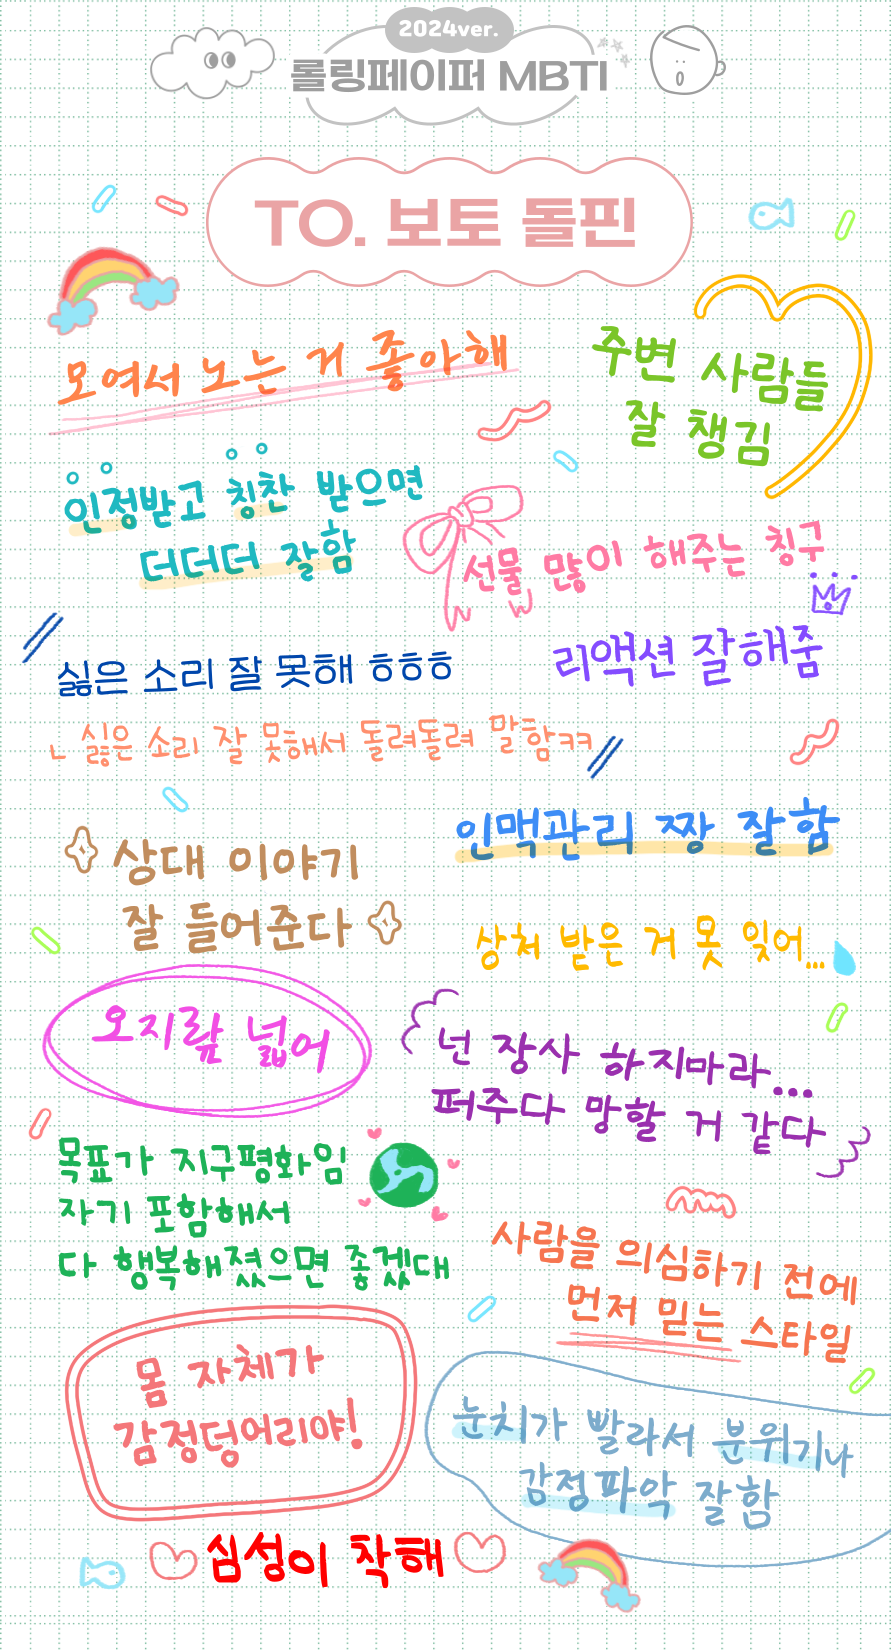 2024ver.
롤링페이퍼 MBTI
TO. 보토 돌핀
모여서 노는 거 좋아해
주변 사람들
잘 챙김
인정받고 칭찬 받으면
더더더 잘함
선물 많이 해주는 칭구
리액션 잘해줌
싫은 소리 잘 못해 ㅎㅎㅎ
ㄴ 싫은 소리 잘 못해서 돌려돌려 말함ㅋㅋ
인맥관리 짱 잘함
상대 이야기
잘 들어준다
상처 받은 거 못 잊어...
오지랖 넓어
넌 장사 하지마라...
퍼주다 망할 거 같다
목표가 지구평화임
자기 포함해서
다 행복해졌으면 좋겠대
사람을 의심하기 전에
먼저 믿는 스타일
몸 자체가
감정덩어리야!
눈치가 빨라서 분위기나
감정파악 잘함
심성이 착해